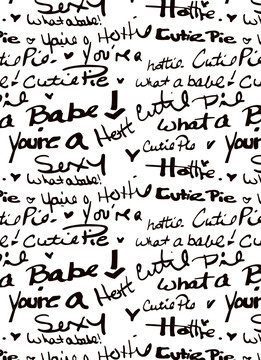 Hottie. Cutie
What a babe!
Cutie Pie • You're a Hottie Cutie Pie
Cutie Pie. You're a hottie Cutie Pie
Cutie Pie what a babe! Cutie
Babe! Cutie Pie
You're a Hott what a Babe
Cutie Pie You're
Sexy Hottie.
What a babe!
Cutie Pie • You're a Hottie Cutie Pie
Cutie Pie. You're a hottie Cutie Pie
Cutie Pie what a babe! Cutie
Babe! Cutie Pie
You're a Hott what a Babe
Cutie Pie You're
Sexy Hottie.
What a babe!
You're a Hottie Cutie Pie